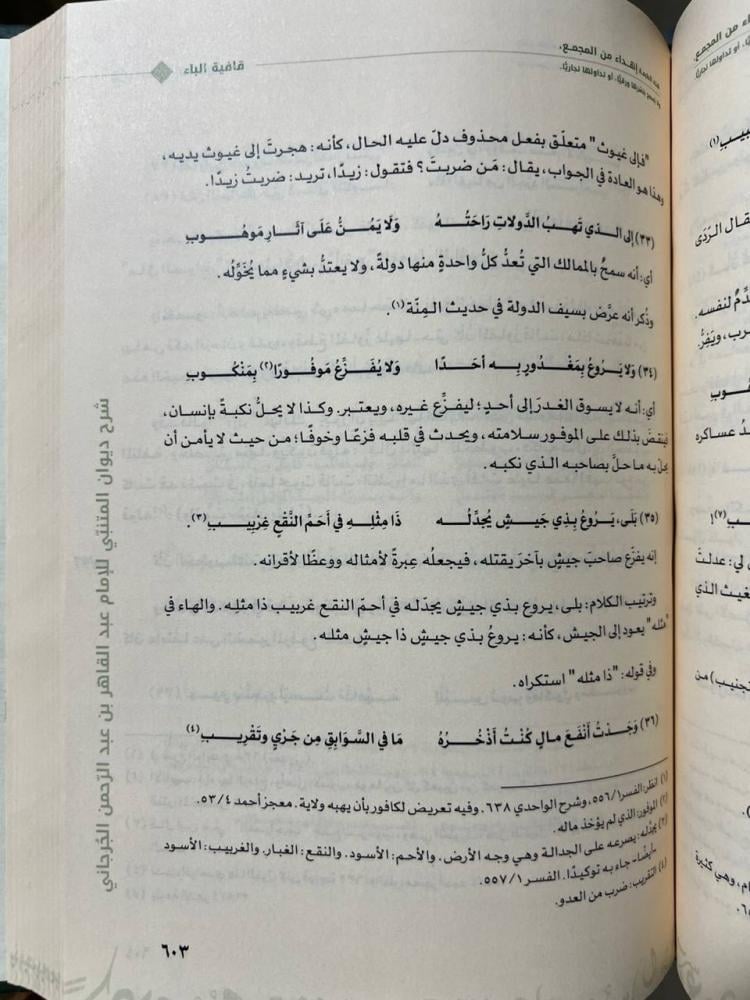 هذه النسخة إهداء من المجمع،
ولا يسمح بنشرها ورقيًّا، أو تداولها تجاريًّا.
قافية الباء
"فإلى غيوث" متعلّق بفعل محذوف دلّ عليه الحال، كأنه: هجرتَ إلى غيوث يديه،
وهذا هو العادة في الجواب، يقال: مَن ضربتَ؟ فتقول: زيدًا، تريد: ضربتُ زيدًا.
(٣٣) إلى الـذي تَهبُ الدَّولاتِ رَاحَتُـهُ وَلَا يَمُـنُّ عَلَى آثَـارِ مَوهُـوبِ
أي: أنه سمحٌ بالممالك التي تُعدُّ كلُّ واحدةٍ منها دولةً، ولا يعتدُّ بشيءٍ مما يُخَوِّلُه.
وذُكر أنه عرَّض بسيف الدولة في حديث المِنّة(١).
(٣٤) وَلَا يَرُوعُ بِمَغْـدُورٍ بِـهِ أحَـدًا وَلَا يُفَـزِّعُ مَوفُـورًا(٢) بِمَنْكُـوبِ
أي: أنه لا يسوق الغدرَ إلى أحدٍ؛ ليفزِّع غيره، ويعتبر. وكذا لا يحلُّ نكبةً بإنسان،
فينقضَ بذلك على الموفور سلامته، ويحدث في قلبه فزعًا وخوفًا؛ من حيث لا يأمن أن
يحلّ به ما حلَّ بصاحبه الذي نكبه.
(٣٥) بَلَى، يَـرُوعُ بِـذِي جَيـشٍ يُجدِّلُـه ذَا مِثْلِـهِ في أَحَمِّ النَّقْعِ غِرْبِيبِ(٣).
إنه يفزّع صاحبَ جيشٍ بآخرَ يقتله، فيجعلُه عِبرةً لأمثاله ووعظًا لأقرانه.
وترتيب الكلام: بلى، يروع بذي جيشٍ يجدّله في أحمّ النقع غربيب ذا مثلِه. والهاء في
"مثله" يعود إلى الجيش، كأنه: يروعُ بذي جيشٍ ذا جيش مثله.
وفي قوله: "ذا مثله" استكراه.
(٣٦) وَجَـدْتُ أنْفَعَ مـالٍ كُنْتُ أَذْخُـرُهُ مَا في السَّوَابِقِ مِن جَرْيٍ وتَقْرِيبِ(٤)
(١) انظر: الفسر ٥٥٦/١، وشرح الواحدي ٦٣٨. وفيه تعريض لكافور بأن يهبه ولاية. معجز أحمد ٥٣/٤.
(٢) الموفور: الذي لم يؤخذ ماله.
(٣) يجدّله: يصرعه على الجدالة وهي وجه الأرض. والأحم: الأسود. والنقع: الغبار. والغربيب: الأسود
-أيضًا- جاء به توكيدًا. الفسر ٥٥٧/١.
(٤) التقريب: ضرب من العدو.
شرح ديوان المتنبّي للإمام عبد القاهر بن عبد الرّحمن الجُرجاني
٦٠٣